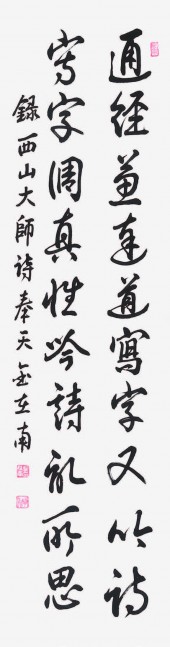 通經兼達道寫字又詩
寫字調真性吟詩所思
錄西山大師詩奉天金在南